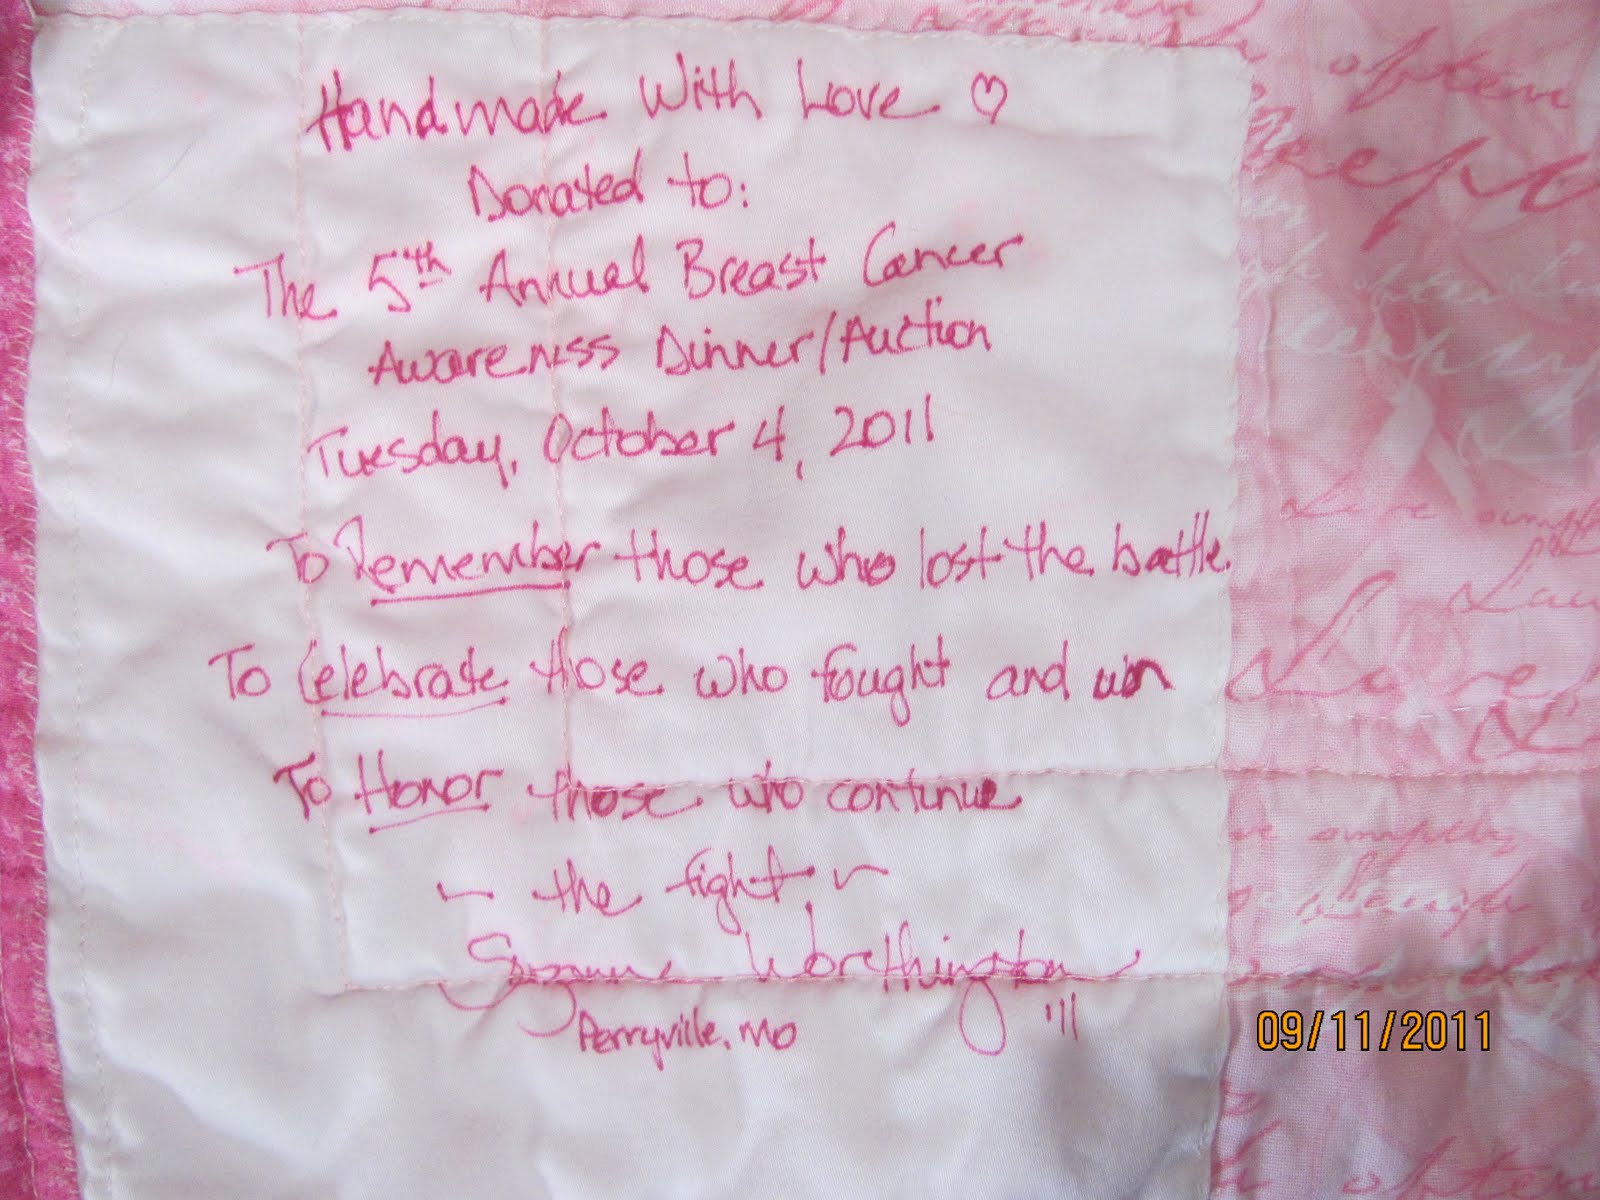 Handmade With Love ♡
Donated to:
The 5th Annual Breast Cancer
Awareness Dinner/Auction
Tuesday, October 4, 2011
To Remember those who lost the battle.
To Celebrate those who fought and won
To Honor those who continue
~ the fight ~
Suzanne Worthington
Perryville, MO '11
09/11/2011
often
Keep
Live simply
Laugh
simply